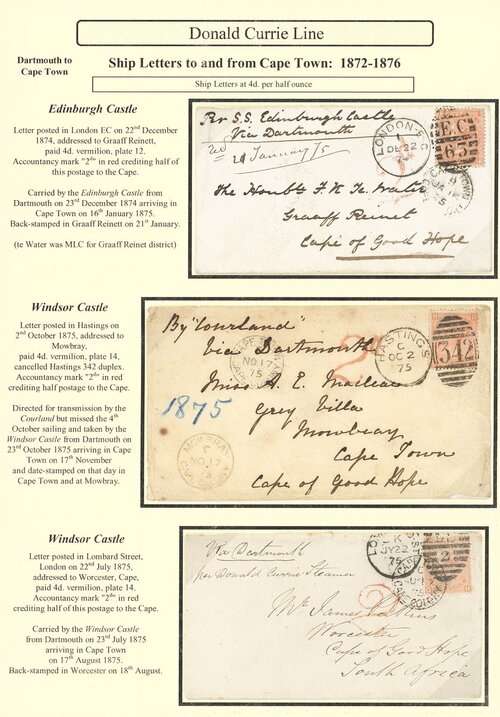 Donald Currie Line
Dartmouth to
Cape Town
Ship Letters to and from Cape Town: 1872-1876
Ship Letters at 4d. per half ounce
Edinburgh Castle
Letter posted in London EC on 22nd December
1874, addressed to Graaff Reinett,
paid 4d. vermilion, plate 12.
Accountancy mark "2d" in red crediting half of
this postage to the Cape.
Carried by the Edinburgh Castle from
Dartmouth on 23rd December 1874 arriving in
Cape Town on 16th January 1875.
Back-stamped in Graaff Reinett on 21st January.
(te Water was MLC for Graaff Reinet district)
Per S.S. Edinburgh Castle
Via Dartmouth
21 January /75
The Honble F. K. Te Water
Graaff Reinet
Cape of Good Hope
LONDON-E.C
DE 22
74
EC
65
Windsor Castle
Letter posted in Hastings on
2nd October 1875, addressed to
Mowbray,
paid 4d. vermilion, plate 14,
cancelled Hastings 342 duplex.
Accountancy mark "2d" in red
crediting half postage to the Cape.
Directed for transmission by the
Courland but missed the 4th
October sailing and taken by the
Windsor Castle from Dartmouth on
23rd October 1875 arriving in Cape
Town on 17th November
and date-stamped on that day in
Cape Town and at Mowbray.
By "Courland"
via Dartmouth
Miss A. E. Maclear
Grey Villa
Mowbray
Cape Town
Cape of Good Hope
1875
NO 17
75
HASTINGS
C
OC 2
75
342
MOWBRAY
C
NO 17
Windsor Castle
Letter posted in Lombard Street,
London on 22nd July 1875,
addressed to Worcester, Cape,
paid 4d. vermilion, plate 14.
Accountancy mark "2d" in red
crediting half of this postage to the Cape.
Carried by the Windsor Castle
from Dartmouth on 23rd July 1875
arriving in Cape Town
on 17th August 1875.
Back-stamped in Worcester on 18th August.
Via Dartmouth
per Donald Currie Steamer
Mr James
Worcester
Cape of Good Hope
South Africa
K
JY 22
75